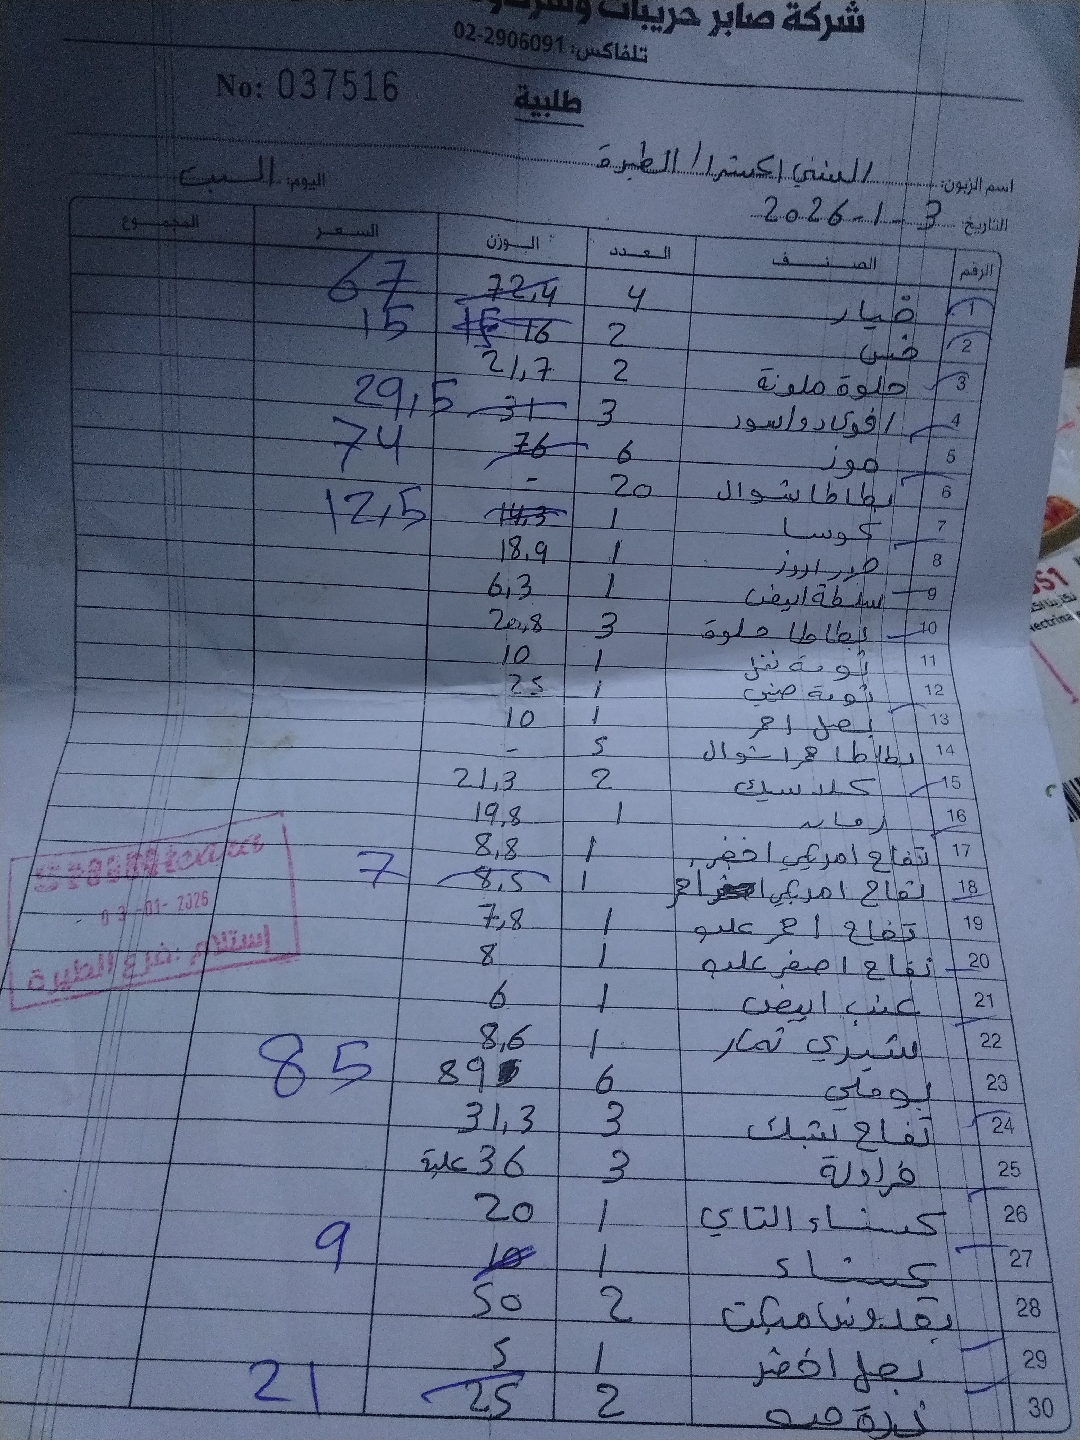 شركة صابر حريبات
تلفاكس: 02-2906091
No: 037516
طلبية
اسم الزبون: السني اكسترا / الطيرة
اليوم: السبت
التاريخ 3-1-2026
الرقم الصنف العدد الوزن السعر المجموع
1 خيار 4 72,4 67
2 خس 2 16 15 15
3 حلوة ملونة 2 21,7
4 افوكادو اسود 3 31 29,5
5 موز 6 76 74
6 بطاطا شوال 20 -
7 كوسا 1 14,3 12,5
8 1 18,9
9 سلطة ابيض 1 6,3
10 بطاطا حلوة 3 20,8
11 ثومة 1 10
12 ثومة صيني 1 25
13 بصل احمر 1 10
14 بطاطا حمرا شوال 5 -
15 كلاسيك 2 21,3
16 رمان 1 19,8
17 تفاح امريكي اخضر 1 8,8
18 تفاح امريكي احمر 1 8,5 7
19 تفاح احمر عليه 1 7,8
20 تفاح اصفر عليه 1 8
21 عنب ابيض 1 6
22 شيري تمار 1 8,6
23 بوملي 6 89 85
24 تفاح تشبك 3 31,3
25 فراولة 3 36 علبة
26 كستناء التاي 1 20
27 كستناء 1 10 9
28 بقدونس 2 50
29 بصل اخضر 1 5
30 ذرة حبه 2 25 21
03-01-2026
استلام: فرع الطيرة